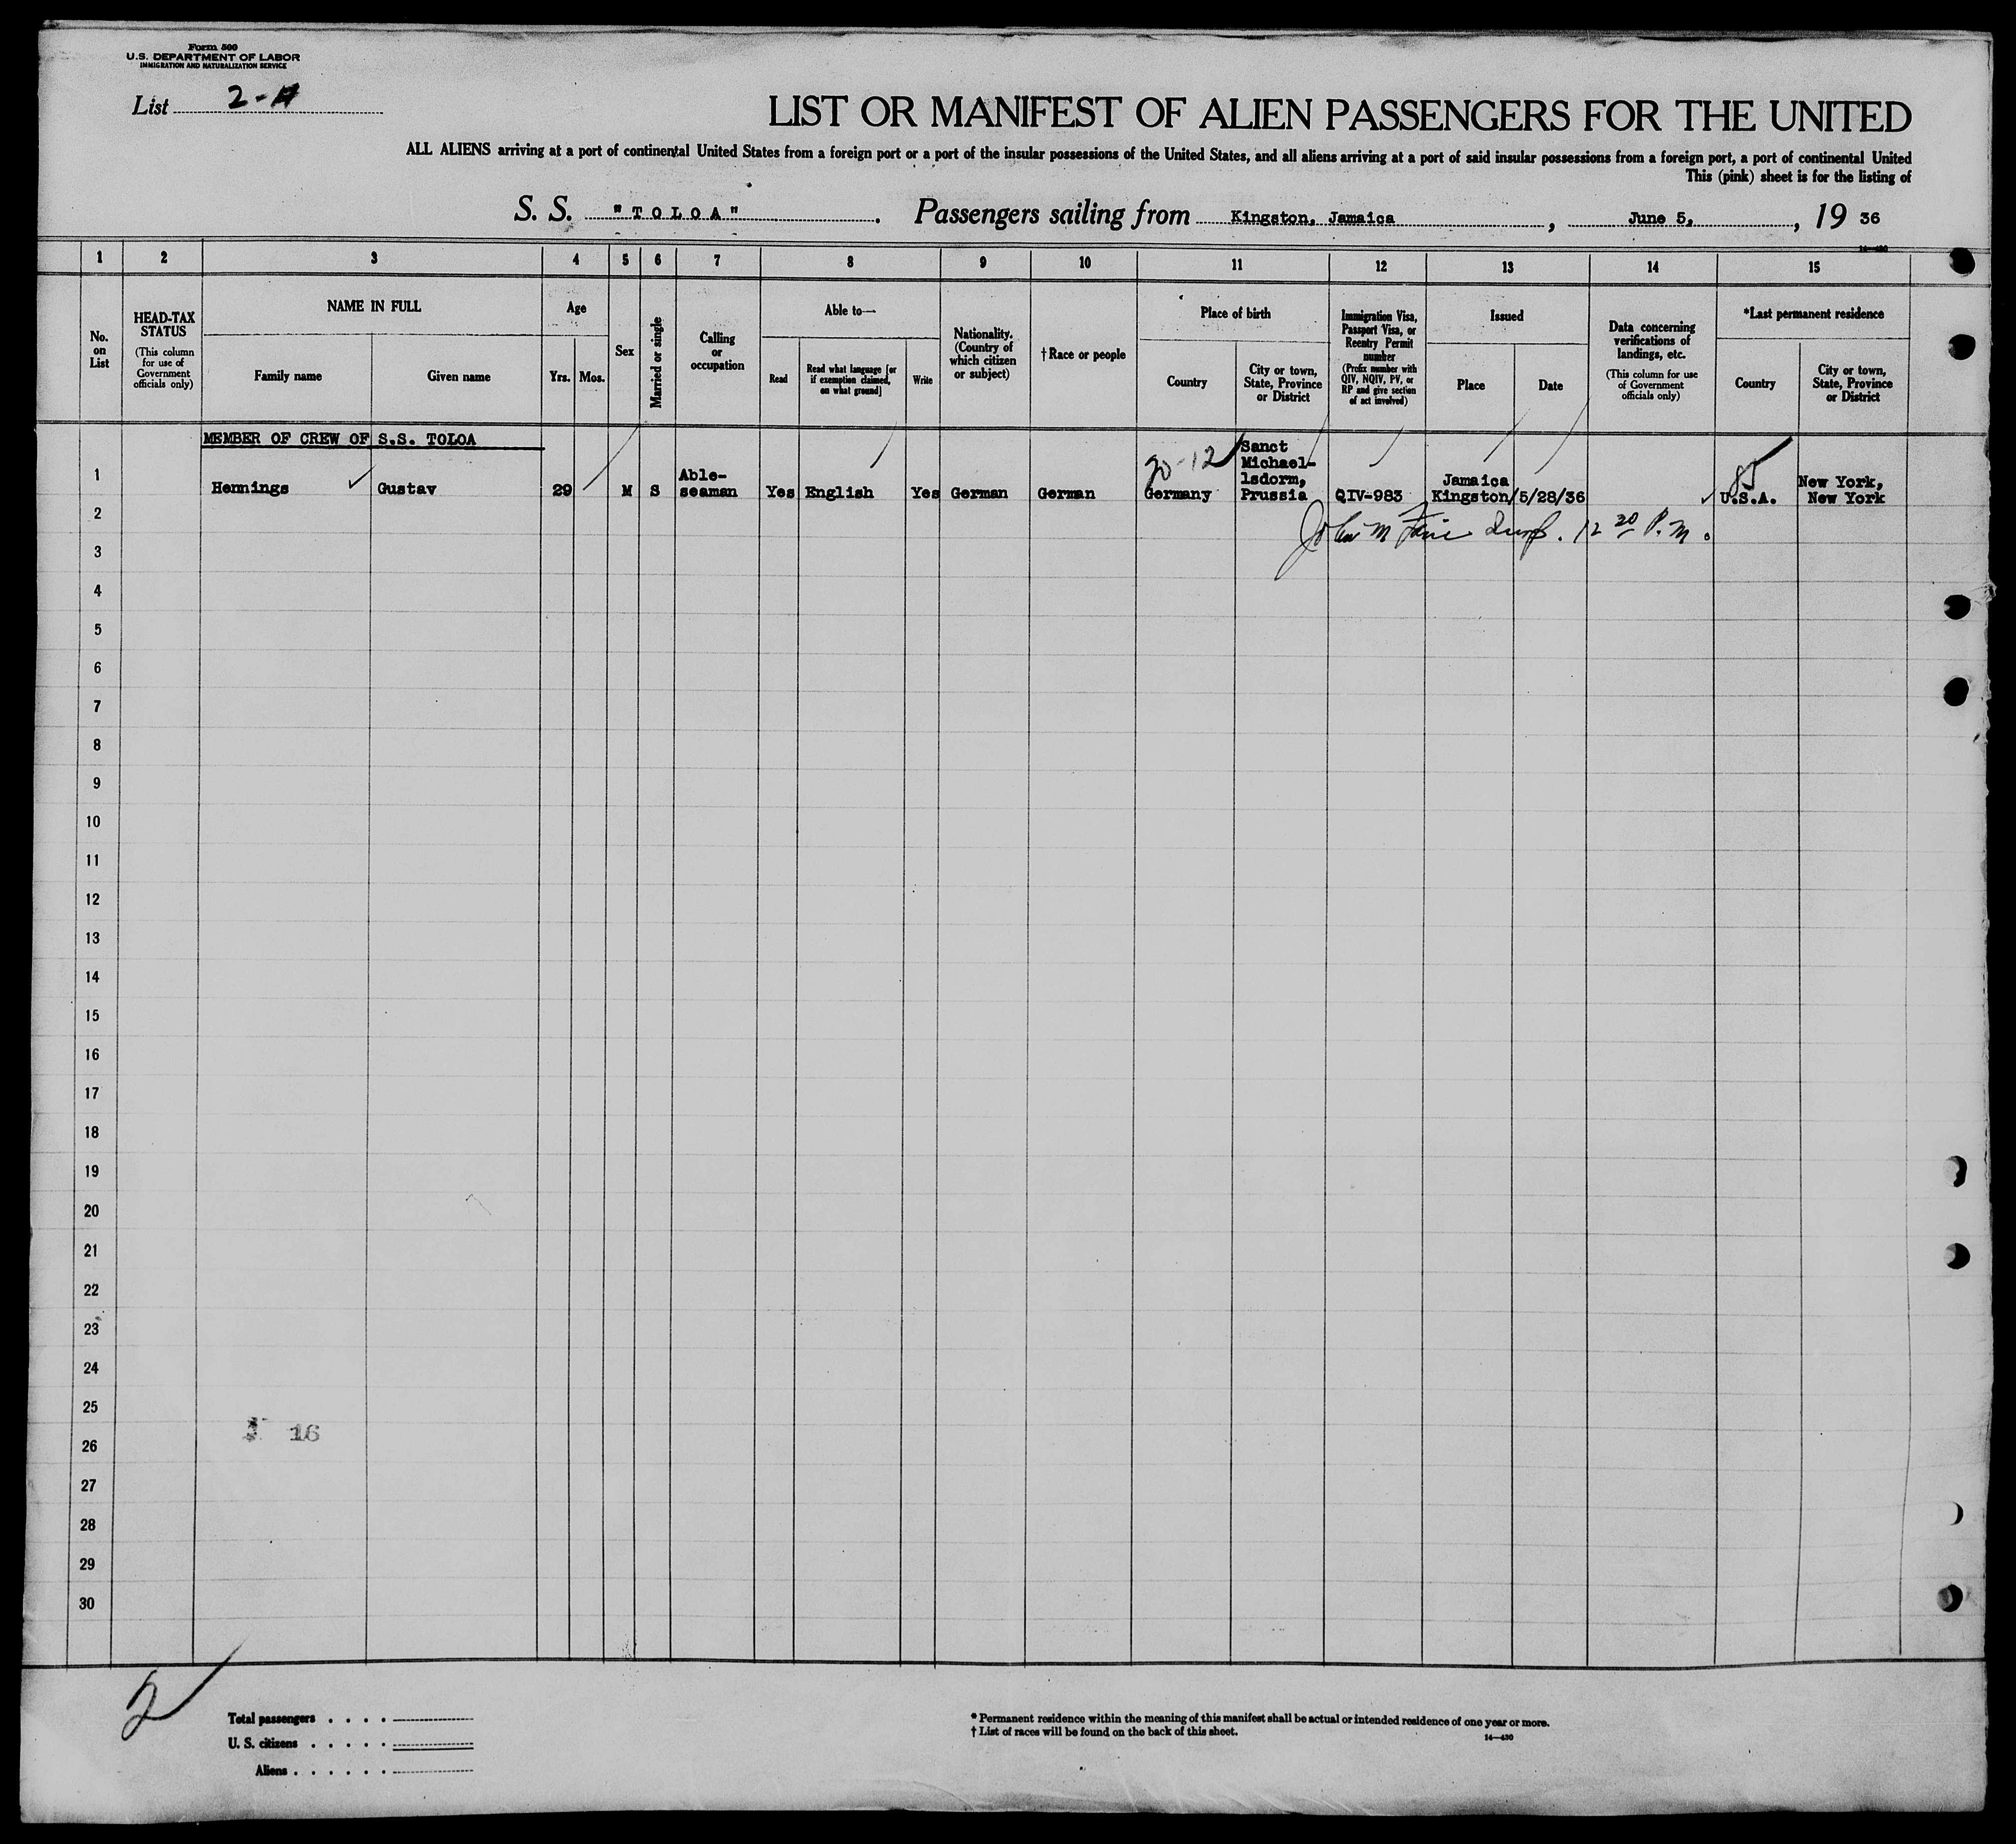 Form 500
U.S. DEPARTMENT OF LABOR
IMMIGRATION AND NATURALIZATION SERVICE
List 2-
LIST OR MANIFEST OF ALIEN PASSENGERS FOR THE UNITED
ALL ALIENS arriving at a port of continental United States from a foreign port or a port of the insular possessions of the United States, and all aliens arriving at a port of said insular possessions from a foreign port, a port of continental United
This (pink) sheet is for the listing of
S. S. "TOLOA". Passengers sailing from Kingston, Jamaica, June 5, , 19 36
14-430
1 2 3 4 5 6 7 8 9 10 11 12 13 14 15
No. on List
HEAD-TAX STATUS
(This column for use of Government officials only)
NAME IN FULL
Family name
Given name
Age
Yrs. Mos.
Sex
Married or single
Calling or occupation
Able to—
Read
Read what language [or if exemption claimed, on what ground]
Write
Nationality. (Country of which citizen or subject)
†Race or people
Place of birth
Country
City or town, State, Province or District
Immigration Visa, Passport Visa, or Reentry Permit number
(Prefix number with QIV, NQIV, PV, or RP and give section of act involved)
Issued
Place
Date
Data concerning verifications of landings, etc.
(This column for use of Government officials only)
*Last permanent residence
Country
City or town, State, Province or District
MEMBER OF CREW OF S.S. TOLOA
1 Hennings Gustav 29 M S Able-seaman Yes English Yes German German 20-12 Germany Sanct Michael-lsdorm, Prussia QIV-983 Jamaica Kingston/5/28/36 85 U.S.A. New York, New York
2
John M 12 20 P.M.
3
4
5
6
7
8
9
10
11
12
13
14
15
16
17
18
19
20
21
22
23
24
25
16
26
27
28
29
30
2
Total passengers . . . .
U. S. citizens . . . . .
Aliens . . . . . .
* Permanent residence within the meaning of this manifest shall be actual or intended residence of one year or more.
† List of races will be found on the back of this sheet.
14-430